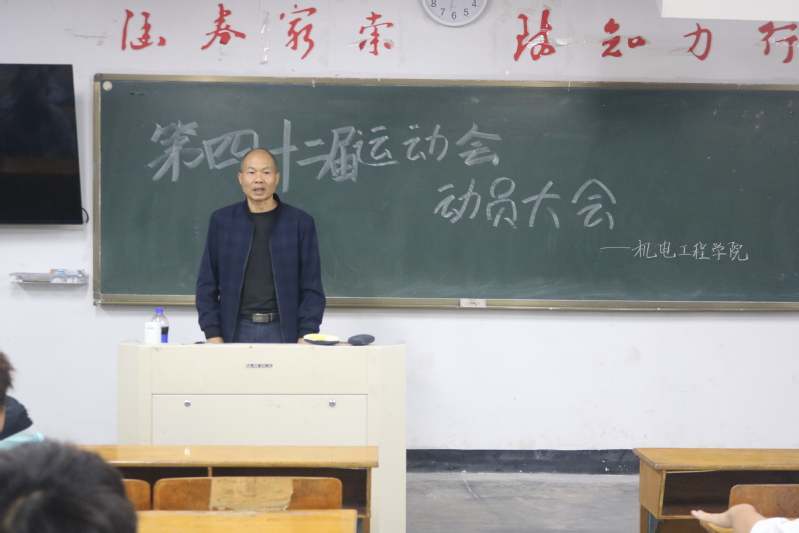 涵春家索 踏知力行
8 7 6 5 4
第四十二届运动会
动员大会
——机电工程学院